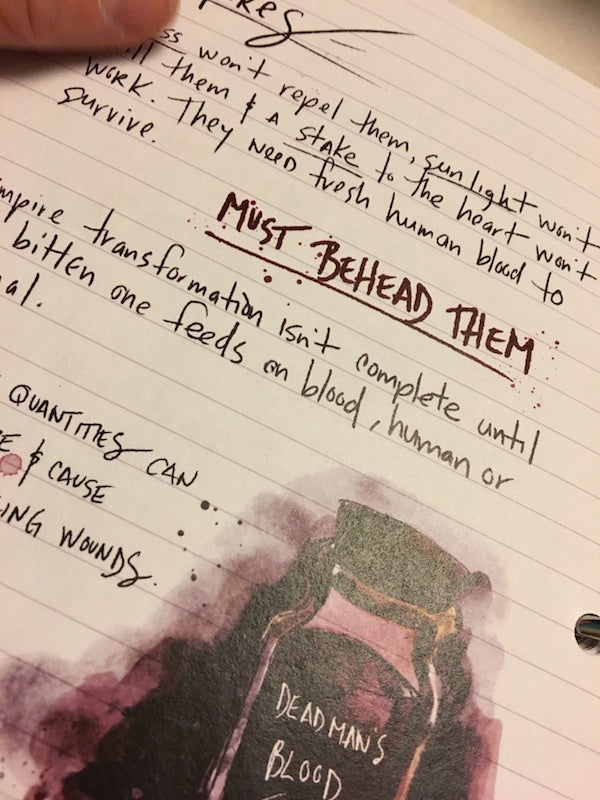 won't repel them, sunlight won't
them & a stake to the heart won't
work. They need fresh human blood to
survive.
MUST BEHEAD THEM
transformation isn't complete until
bitten one feeds on blood, human or
QUANTITIES CAN
& CAUSE
WOUNDS.
DEADMAN'S
BLOOD